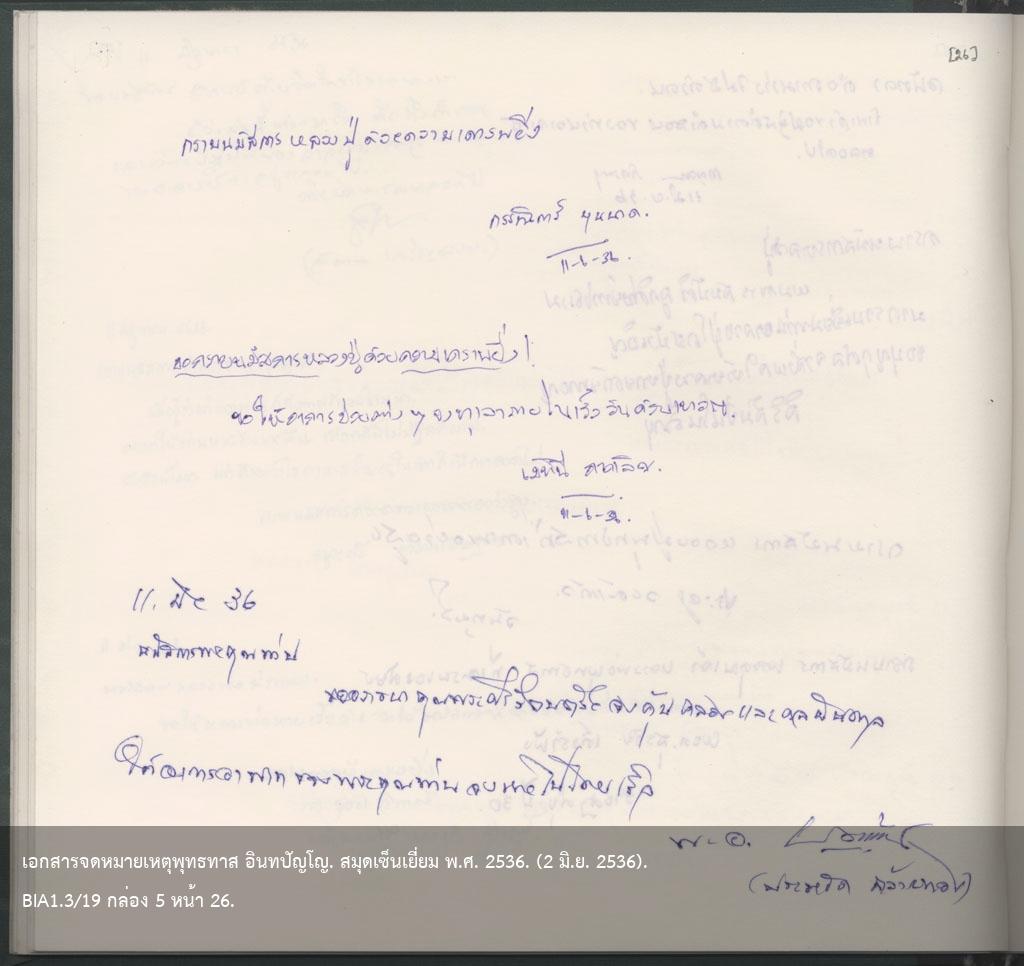 [26]
กราบนมัสการ หลวงปู่ ด้วยความเคารพยิ่ง
บุนนาค.
11-6-36.
ขอกราบนมัสการหลวงปู่ด้วยความเคารพยิ่ง!
ขอให้อาการป่วยต่าง ๆ จงทุเลาภายในเร็ววันด้วยเทอญ.
เมทินี
11-6-36.
11. มิย 36
นมัสการพระคุณท่าน
ขออาราธนาคุณพระศรีรัตนตรัย จงคุ้มครอง และดลบันดาล
ให้อาการอาพาธของพระคุณท่าน จงหายไปโดยเร็ว
พ.อ.
เอกสารจดหมายเหตุพุทธทาส อินทปัญโญ. สมุดเซ็นเยี่ยม พ.ศ. 2536. (2 มิ.ย. 2536).
BIA1.3/19 กล่อง 5 หน้า 26.